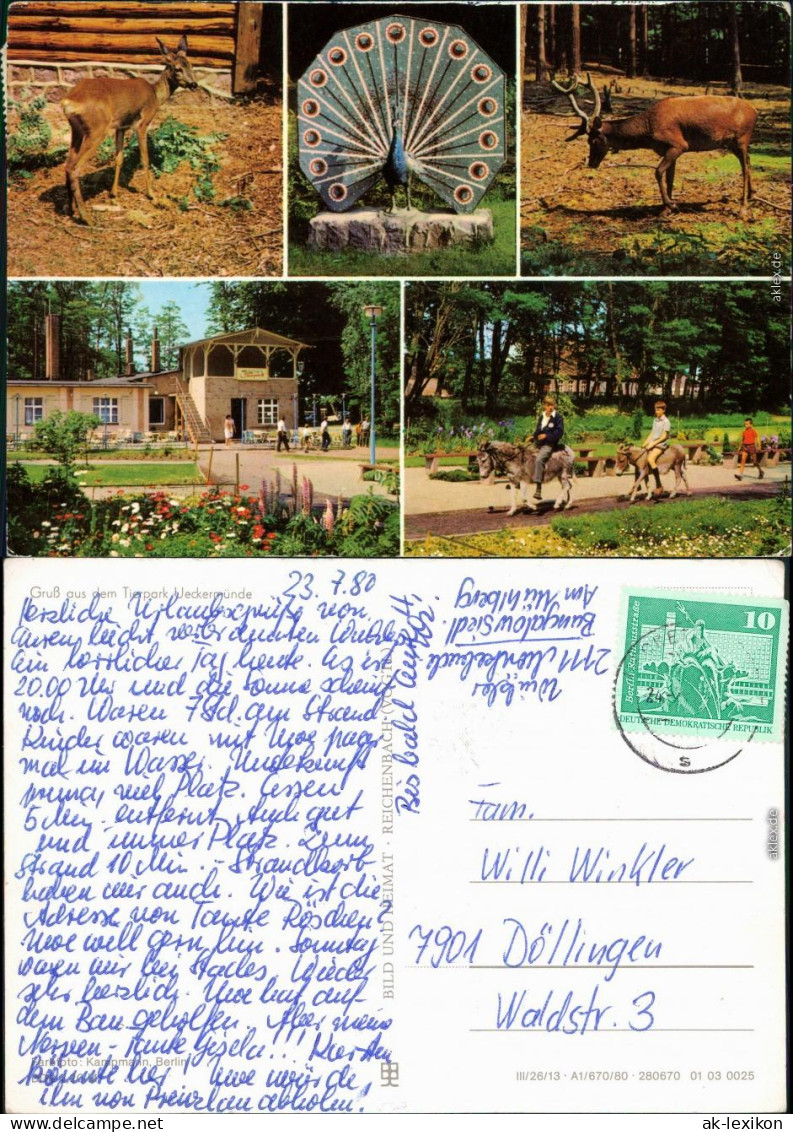 aklex.de
Gruß aus dem Tierpark Ueckermünde
23.7.80
Herzliche Urlaubsgrüße von
Euren leicht verbrannten
Ein herrlicher Tag heute. Es ist
20.00 Uhr und die Sonne scheint
noch. Waren 7 Std. am Strand
Kinder waren mit Uwe paar
mal im Wasser. Unterkunft
prima, viel Platz. Essen
5 Min. entfernt. Auch gut
und immer Platz. Zum
Strand 10 Min. - Strandkorb
haben wir auch. Wie ist die
Adresse von Tante Röschen?
Uwe will gern hin. Sonntag
waren wir bei Wieder
sehr herzlich. Uwe hat auf
dem Bau geholfen. Aber meine
Nerven - Tante Gisela!!!
könnte hier Uwe würde
ihn von Prenzlau abholen!
Farbfoto: Kampmann, Berlin
BILD UND HEIMAT · REICHENBACH (VOGTL)
Bis bald
2111 Mönkebude
Bungalowsiedl.
Am Mühlberg
10
DEUTSCHE DEMOKRATISCHE REPUBLIK
s
Fam.
Willi Winkler
7901 Döllingen
Waldstr. 3
aklex.de
III/26/13 · A1/670/80 · 280670 01 03 0025
ak-lexikon